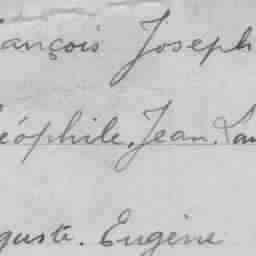 ançois Joseph
éophile. Jean. Lau
guste. Eugène